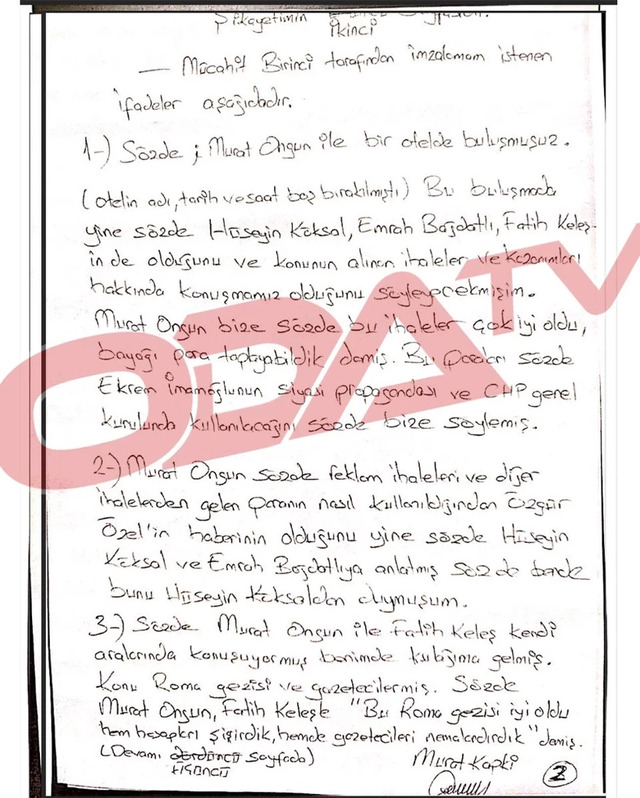 Şikayetimin İkinci Sayfasıdır.
— Mücahit Birinci tarafından imzalamam istenen
ifadeler aşağıdadır.
1-) Sözde ; Murat Ongun ile bir otelde buluşmuşuz.
(otelin adı, tarih ve saat boş bırakılmıştı) Bu buluşmada
yine sözde Hüseyin Köksal, Emrah Bağdatlı, Fatih Keleş-
in de olduğunu ve konunun alınan ihaleler ve kazanımları
hakkında konuşmamız olduğunu söyleyecekmişim.
Murat Ongun bize sözde bu ihaleler çok iyi oldu,
bayağı para toplayabildik demiş. Bu paraları sözde
Ekrem İmamoğlunun siyasi propagandası ve CHP genel
kurulunda kullanılacağını sözde bize söylemiş.
2-) Murat Ongun sözde reklam ihaleleri ve diğer
ihalelerden gelen paranın nasıl kullanıldığından Özgür
Özel'in haberinin olduğunu yine sözde Hüseyin
Köksal ve Emrah Bağdatlıya anlatmış sözde bende
bunu Hüseyin Köksaldan duymuşum.
3-) Sözde Murat Ongun ile Fatih Keleş kendi
aralarında konuşuyormuş benimde kulağıma gelmiş.
Konu Roma gezisi ve gazetecilermiş. Sözde
Murat Ongun, Fatih Keleşle "Bu Roma gezisi iyi oldu
hem hesapları şişirdik, hemde gazetecileri nemalandırdık" demiş.
(Devamı dördüncü sayfada) Murat Kapki
üçüncü
2
ODA TV